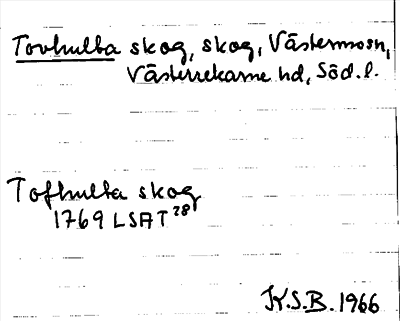 Tovhulta skog, skog, Västermosn,
Västerrekarne hd, Söd. l.
Tofhulta skog
1769 LSAT 28
K.S.B. 1966